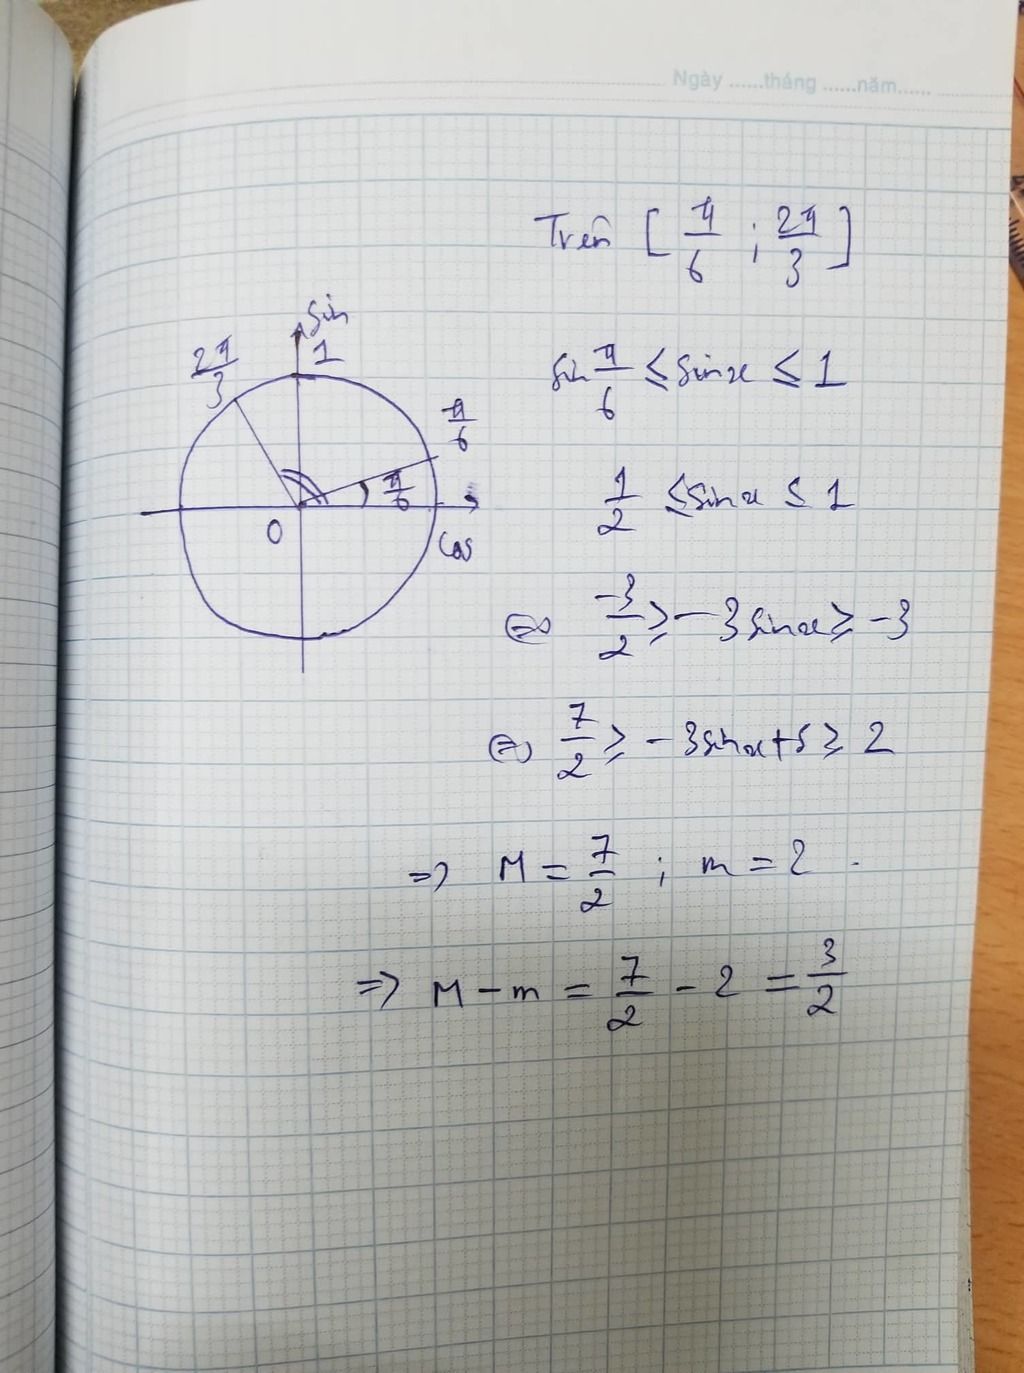 Ngày ......tháng ......năm......
Trên [π/6 ; 2π/3]
sin
2π/3
1
π/6
π/6
O
cos
sin π/6 ≤ sinx ≤ 1
1/2 ≤ sinx ≤ 1
⇔ -3/2 ≥ -3sinx ≥ -3
⇔ 7/2 ≥ -3sinx+5 ≥ 2
=> M = 7/2 ; m = 2
=> M - m = 7/2 - 2 = 3/2